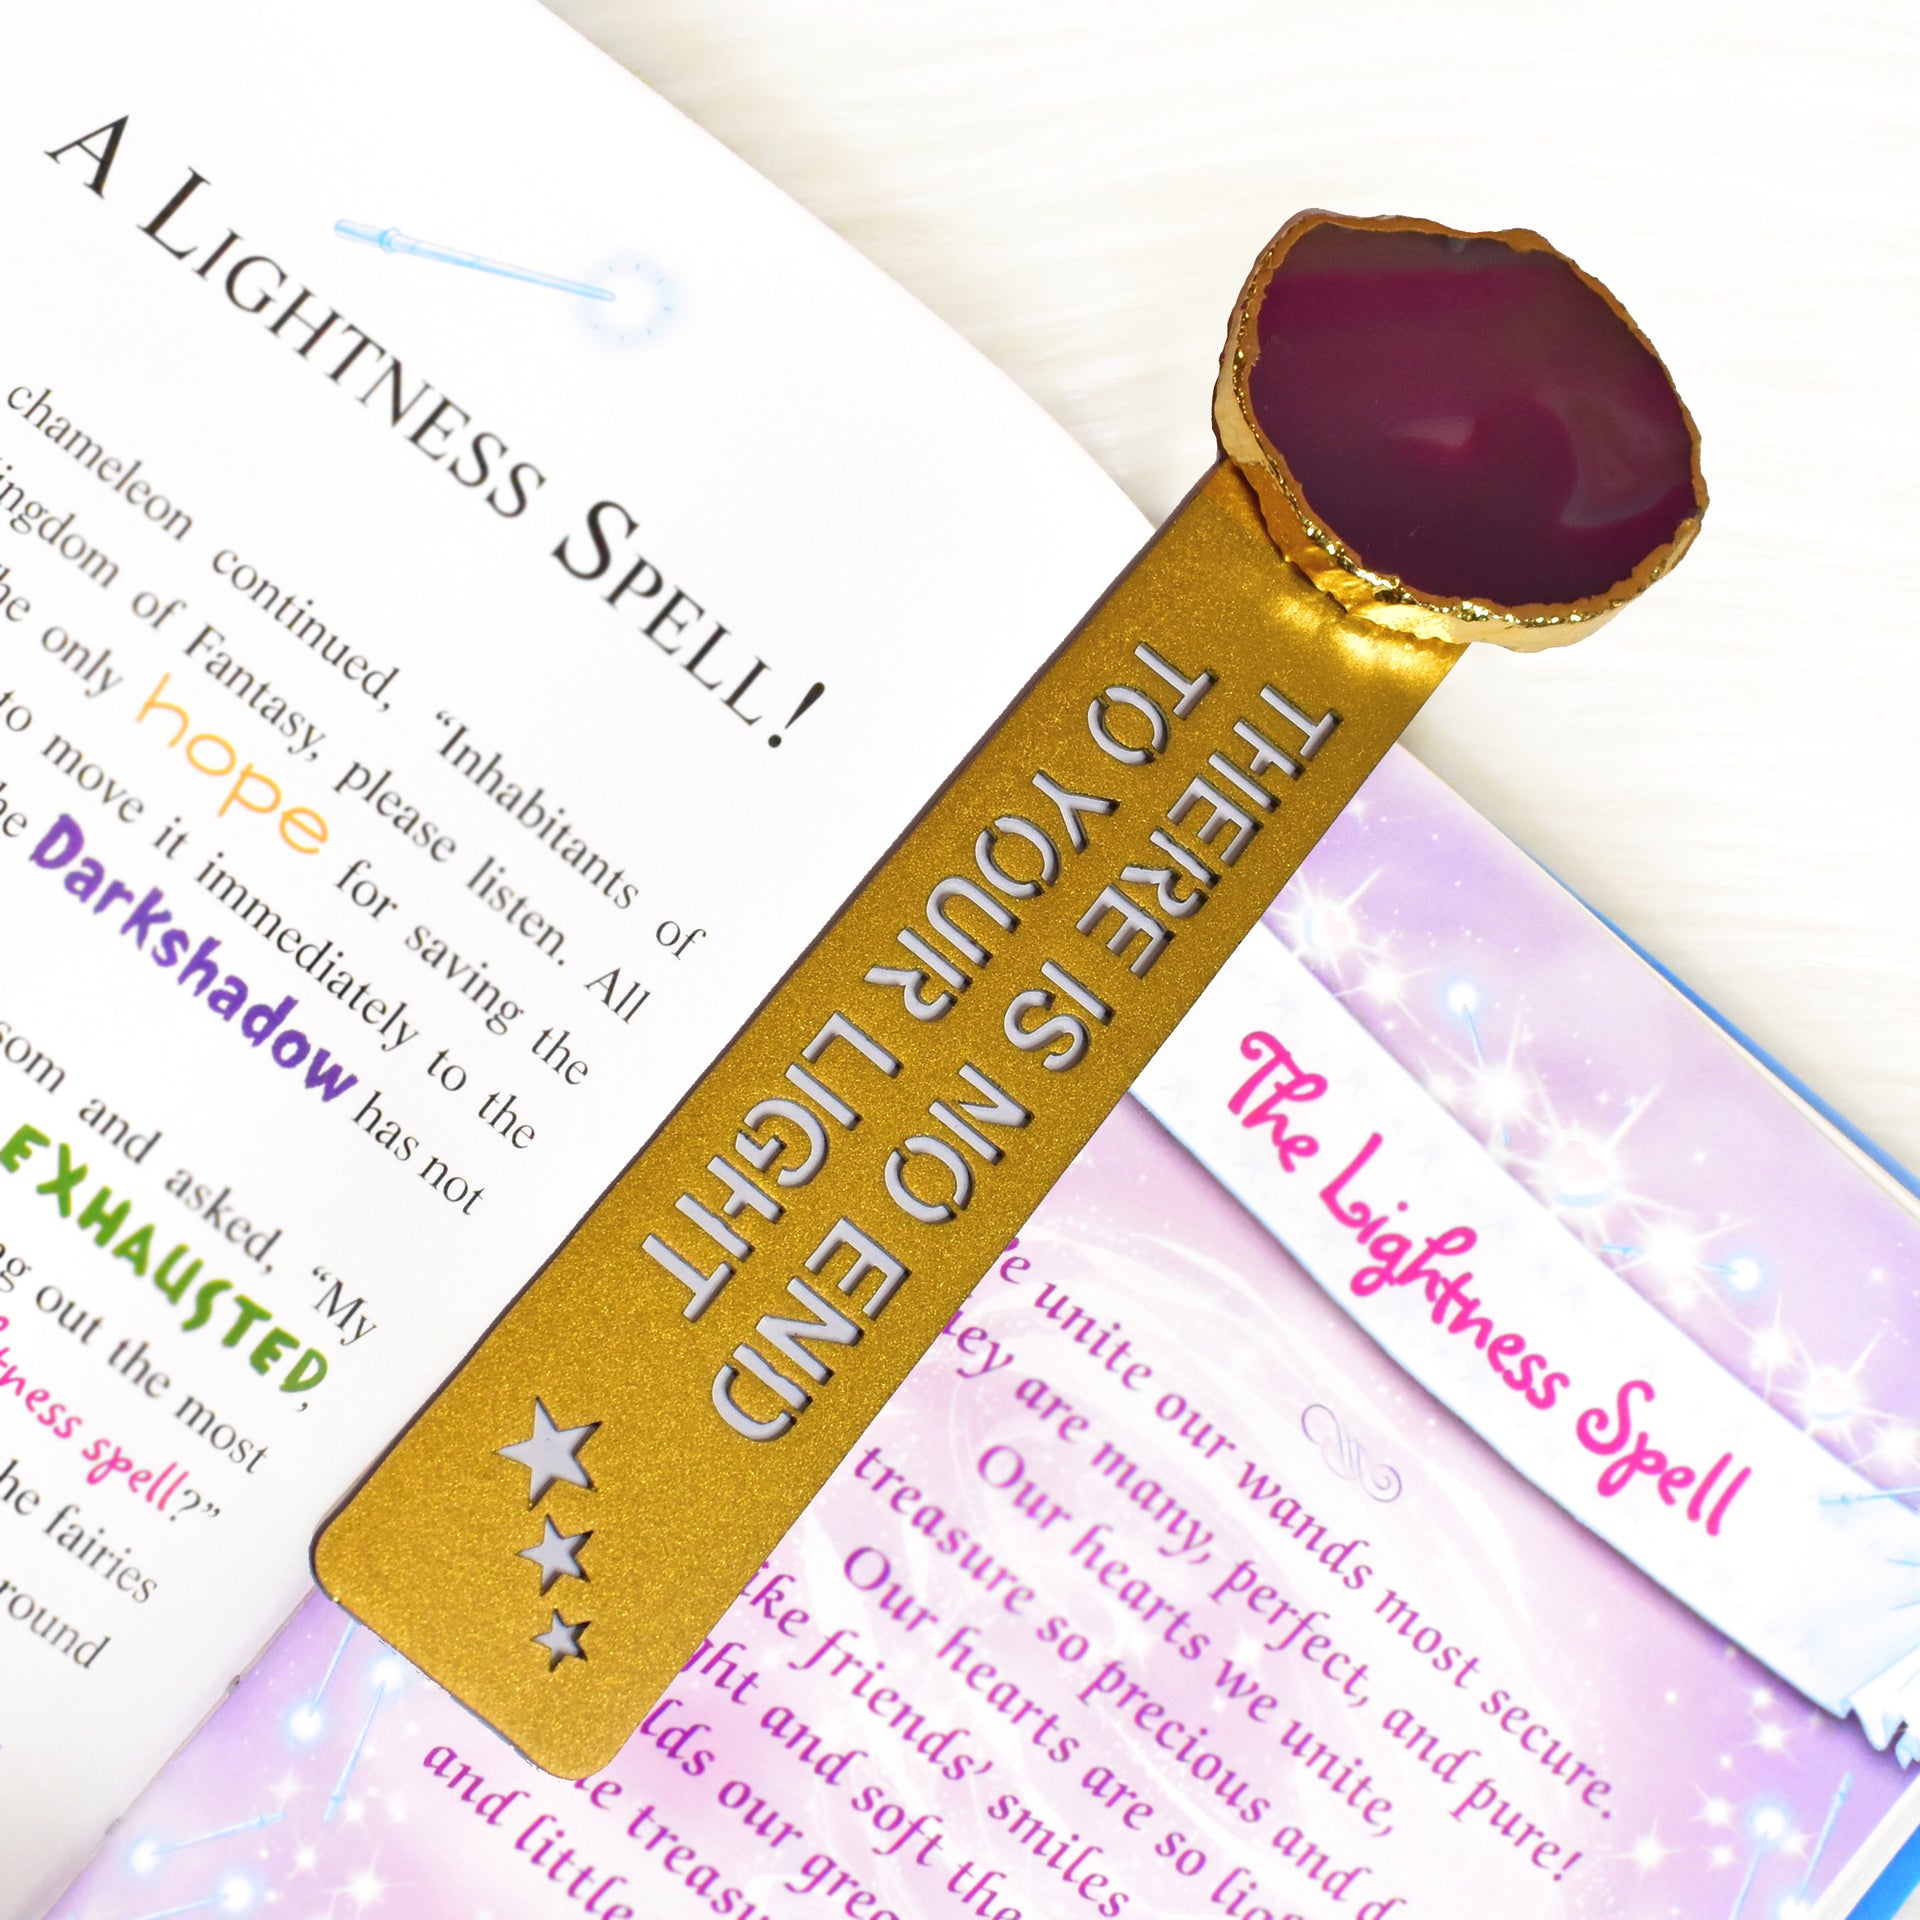 A LIGHTNESS SPELL!
chameleon continued, “Inhabitants of
ingdom of Fantasy, please listen. All
only hope for saving the
to move it immediately to the
Darkshadow has not
and asked, “My
EXHAUSTED,
out the most
spell?”
fairies
THERE IS NO END
TO YOUR LIGHT
The Lightness Spell
unite our wands most secure.
are many, perfect, and pure!
Our hearts we unite,
treasure so precious and
Our hearts are so
friends’ smiles
and soft the
our
treasu
and little